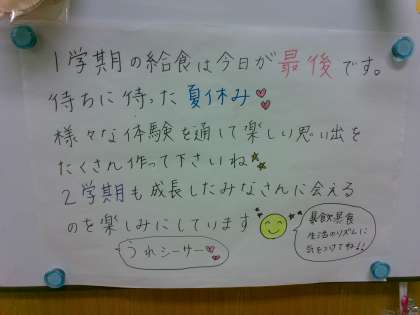 1学期の給食は今日が最後です。
待ちに待った夏休み
様々な体験を通して楽しい思い出を
たくさん作って下さいね
2学期も成長したみなさんに会える
のを楽しみにしています
うれシーサー
暴飲暴食
生活のリズムに
気をつけてね!!